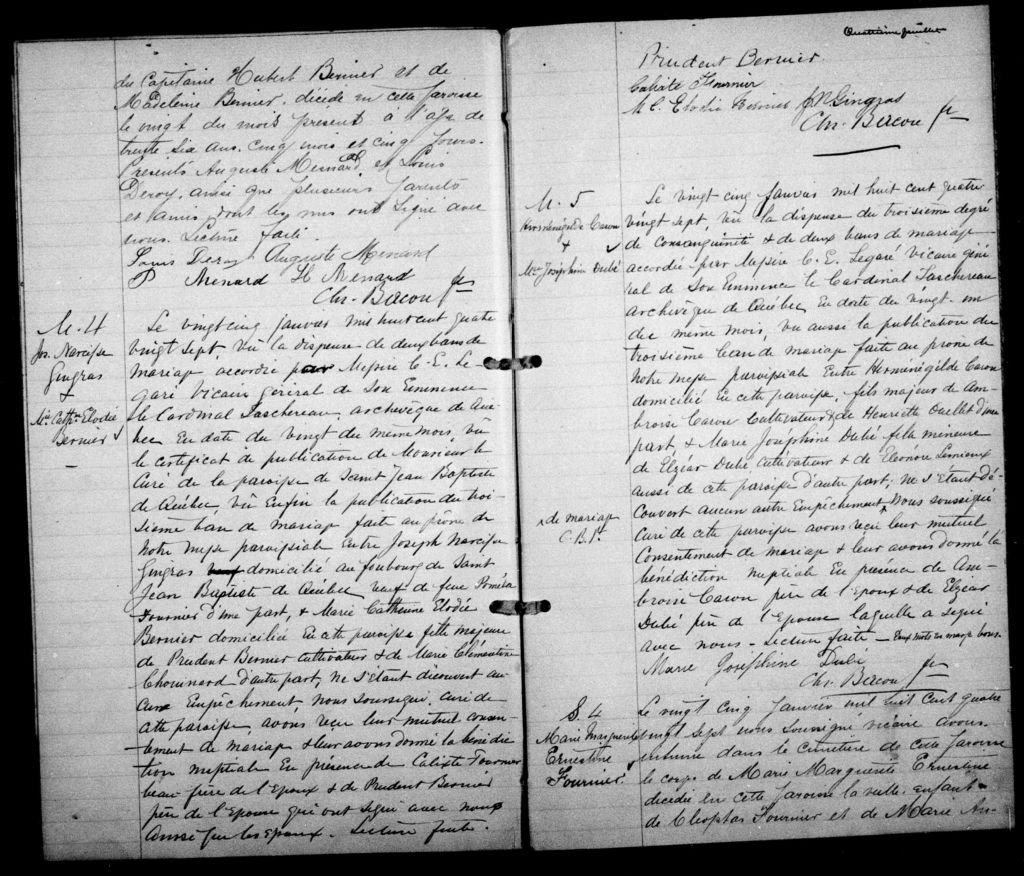 du Capitaine Hubert Bernier et de
Madeleine Bernier, décédé en cette Paroisse
le vingt du mois présent à l'âge de
trente six ans, cinq mois et cinq jours.
Présents Auguste Menard, et Louis
Deroy, ainsi que plusieurs parents
et amis, dont les uns ont signé avec
nous. Lecture faite.
Louis Deroy Auguste Menard
P Menard H Menard
Chs. Bacon ptr
M. 4
Jos. Narcisse
Gingras
+
Me. Cathne Elodie
Bernier
Le vingt cinq janvier mil huit cent quatre
vingt sept, vû la dispense de deux bans de
mariage accordée par Messire C. E. Le-
garé vicaire général de Son Eminence
le Cardinal Taschereau, archevêque de Qué-
bec En date du vingt du même mois, vu
le certificat de publication de Monsieur le
Curé de la paroisse de Saint Jean Baptiste
de Québec, vû Enfin la publication du troi-
sième ban de mariage faite au prône de
Notre Messe paroissiale Entre Joseph Narcisse
Gingras domicilié au faubourg de Saint
Jean Baptiste de Québec, veuf de feue Poméla
Fournier d'une part, & Marie Catherine Elodie
Bernier domiciliée En cette paroisse fille majeure
de Prudent Bernier Cultivateur & de Marie Clémentine
Chouinard d'autre part; ne s'étant découvert au-
cun Empêchement, nous soussigné, curé de
cette paroisse, avons reçu leur mutuel consen-
tement de mariage & leur avons donné la bénédic
tion nuptiale En présence de Calixte Fournier
beau-frère de l'Epoux & de Prudent Bernier
père de l'Epouse qui ont signé avec nous
Aussi que les époux. Lecture faite.
Quatrième feuillet
Prudent Bernier
Calixte Fournier
M C. Elodie Bernier J N Gingras
Chs. Bacon ptr
M. 5
Herménégilde Caron
+
Me. Joséphine Dubé
Le vingt cinq janvier mil huit cent quatre
vingt sept, vû la dispense du troisième degré
de consanguinité & de deux bans de mariage
accordée par Messire C. E. Legaré vicaire géné
ral de Son Eminence le Cardinal Taschereau
archevêque de Québec, En date du vingt-un
du même mois, vu aussi la publication du
troisième ban de mariage faite au prône de
Notre Messe paroissiale Entre Herménégilde Caron
domicilié En cette paroisse, fils majeur de Am-
broise Caron Cultivateur & de Henriette Ouellet d'une
part & Marie Joséphine Dubé fille mineure
de Elzéar Dubé cultivateur & de Eléonore Lemieux
aussi de cette paroisse d'autre part; ne s'étant dé-
couvert aucun autre Empêchement x Nous soussigné
Curé de cette paroisse avons reçu leur mutuel
Consentement de mariage & leur avons donné la
bénédiction nuptiale En présence de Am-
broise Caron père de l'Epoux & de Elzéar
Dubé père de l'Epouse laquelle a signé
avec nous. Lecture faite – Deux mots en marge bons.
x de mariage
C. B. Ptr
Marie Joséphine Dubé
Chs. Bacon ptr
S. 4
Marie Marguerite
Ernestine
Fournier
Le vingt cinq Janvier mil huit Cent quatre
vingt sept nous soussigné vicaire avons
inhumé dans le cimetière de cette Paroisse
le corps de Marie Marguerite Ernestine
décédée en cette Paroisse la veille, enfant
de Cléophas Fournier et de Marie An-